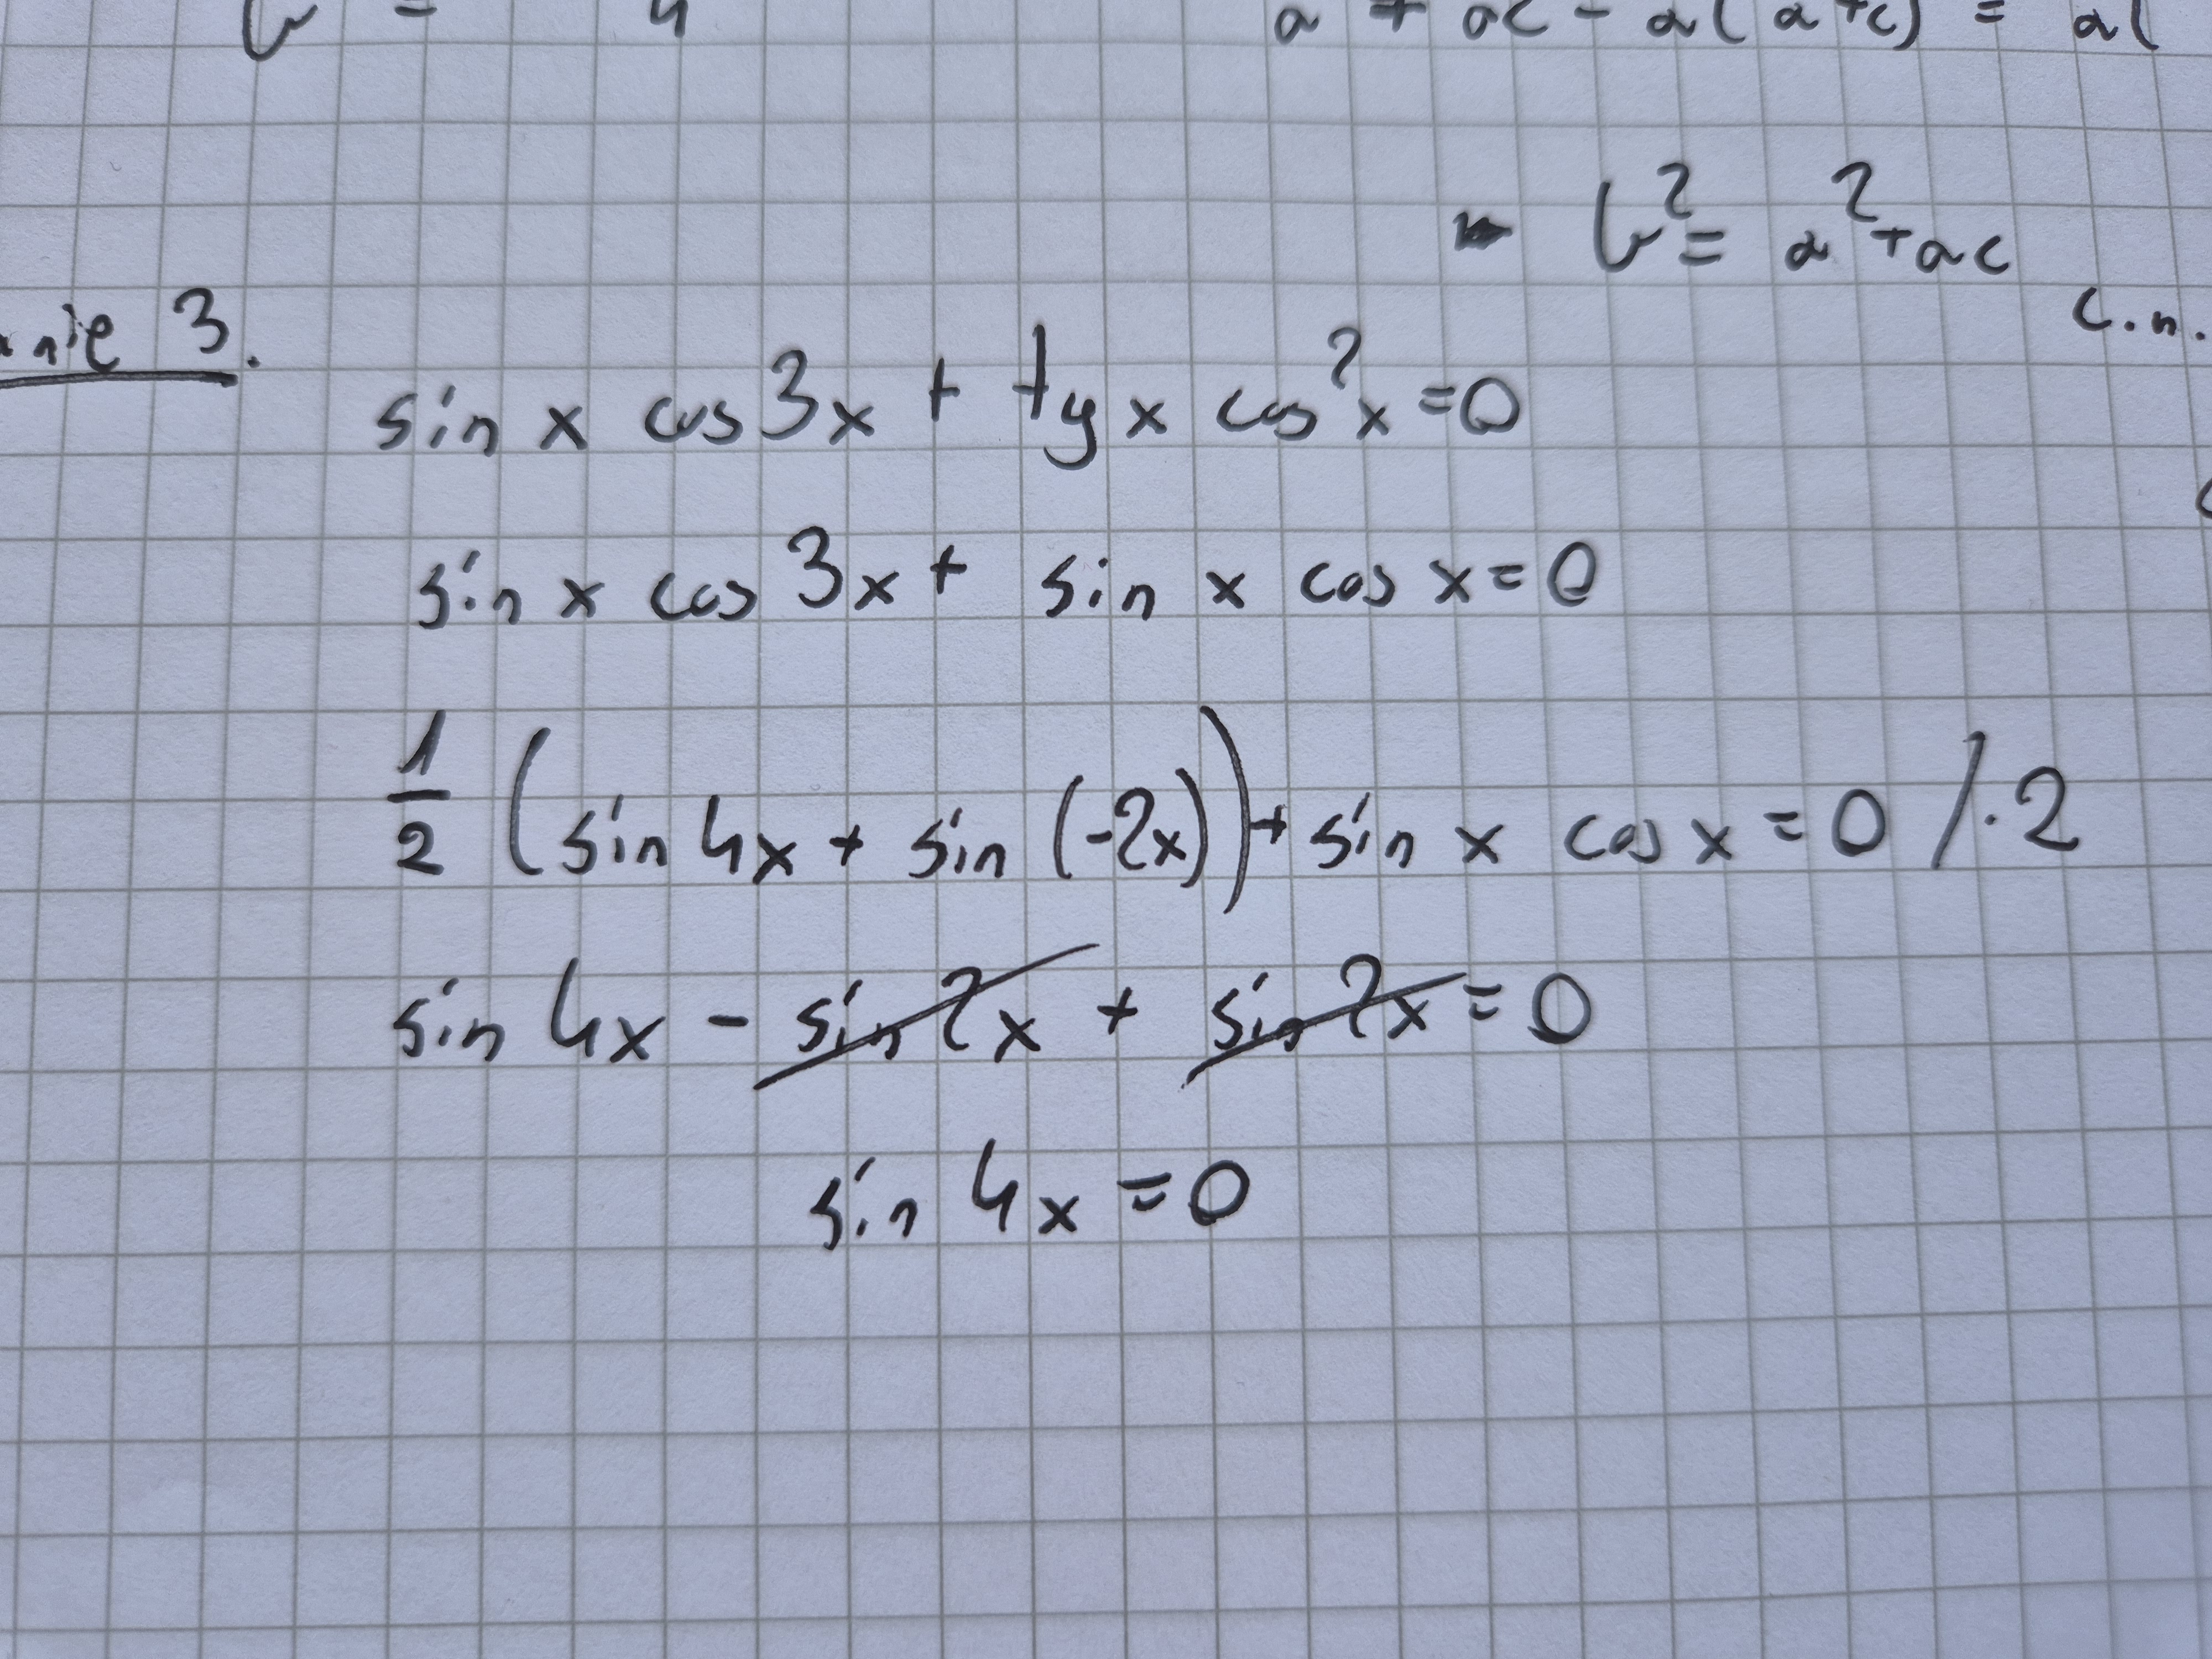 a + ac - a(a+c) = a(
b² = a² + ac
c.n.
nie 3.
sin x cos 3x + tg x cos² x = 0
sin x cos 3x + sin x cos x = 0
1/2 (sin 4x + sin (-2x)) + sin x cos x = 0 / · 2
sin 4x - sin 2x + sin 2x = 0
sin 4x = 0